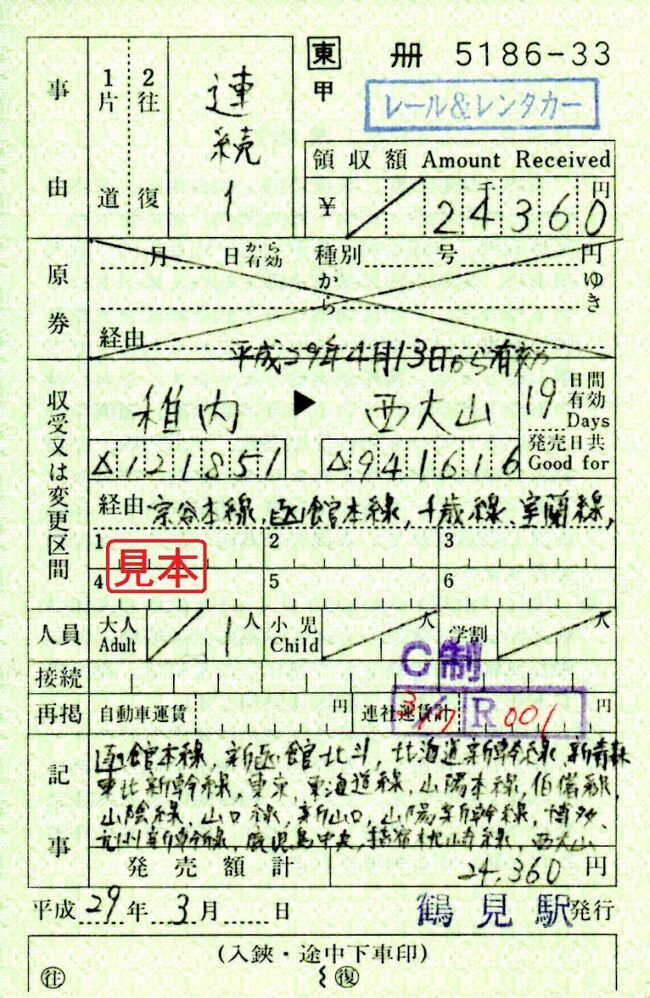 東 冊 5186-33
甲
レール&レンタカー
事由
1片道
2往復
連続1
領収額 Amount Received
¥ 千 円
24360
原券
月 日から有効 種別 号 円
から ゆき
経由
平成29年4月13日から有効
収受又は変更区間
稚内 ▶ 西大山
19 日間有効 Days
発売日共 Good for
△121851 △941616
経由 宗谷本線,函館本線,千歳線、室蘭線,
1 2 3
見本
4 5 6
人員 大人 Adult 1人 小児 Child 人 学割 人
C制
接続
再掲 自動車運賃 円 連社運賃計 円
3/7 R 001
記事
函館本線,新函館北斗,北海道新幹線,新青森
東北新幹線,東京,東海道線,山陽本線,伯備線,
山陰線,山口線,新山口,山陽新幹線,博多,
九州新幹線,鹿児島中央,指宿枕崎線,西大山
発売額計 24,360円
平成29年3月 日 鶴見駅発行
(入鋏・途中下車印)
往 復